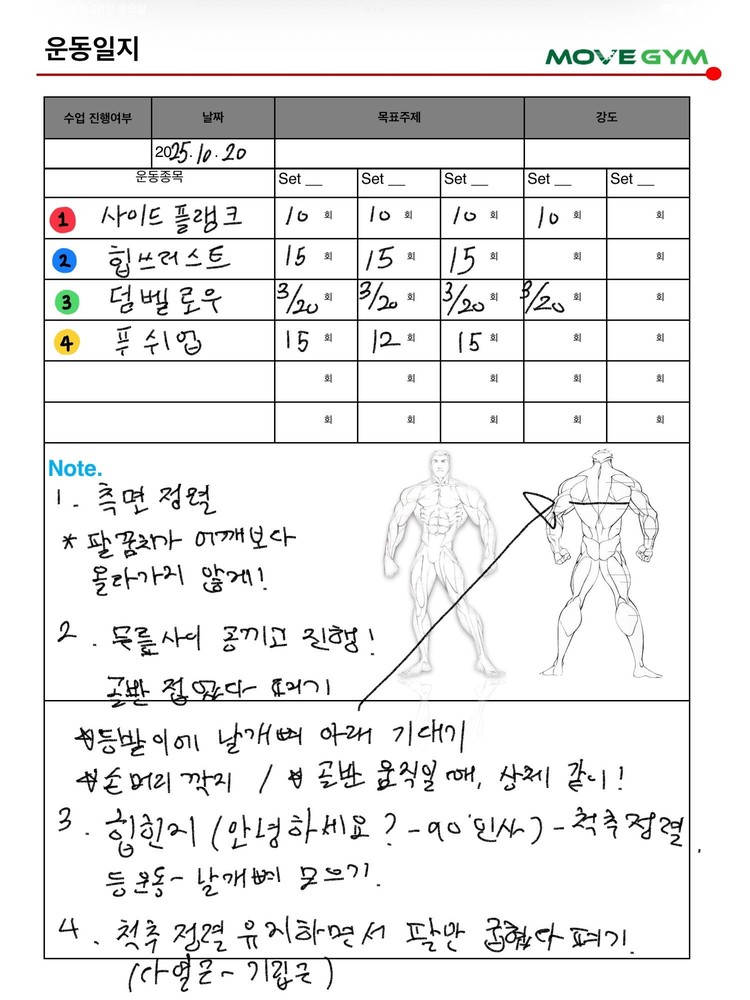 운동일지
MOVE GYM
수업 진행여부 날짜 목표주제 강도
2025.10.20
운동종목 Set __ Set __ Set __ Set __ Set __
1 사이드플랭크 10 회 10 회 10 회 10 회 회
2 힙쓰러스트 15 회 15 회 15 회 회 회
3 덤벨로우 3/20 회 3/20 회 3/20 회 3/20 회 회
4 푸쉬업 15 회 12 회 15 회 회 회
회 회 회 회 회
회 회 회 회 회
Note.
1. 측면 정렬
* 팔꿈치가 어깨보다
올라가지 않게!
2. 무릎사이 공끼고 진행!
골반 접었다 펴기
*등받이에 날개뼈 아래 기대기
*손머리 깍지 / * 골반 움직일 때, 상체 같이!
3. 힙힌지 (안녕하세요? - 90°인사) - 척추정렬.
등운동 - 날개뼈 모으기.
4. 척추 정렬 유지하면서 팔만 굽혔다 펴기.
(다열근 - 기립근)